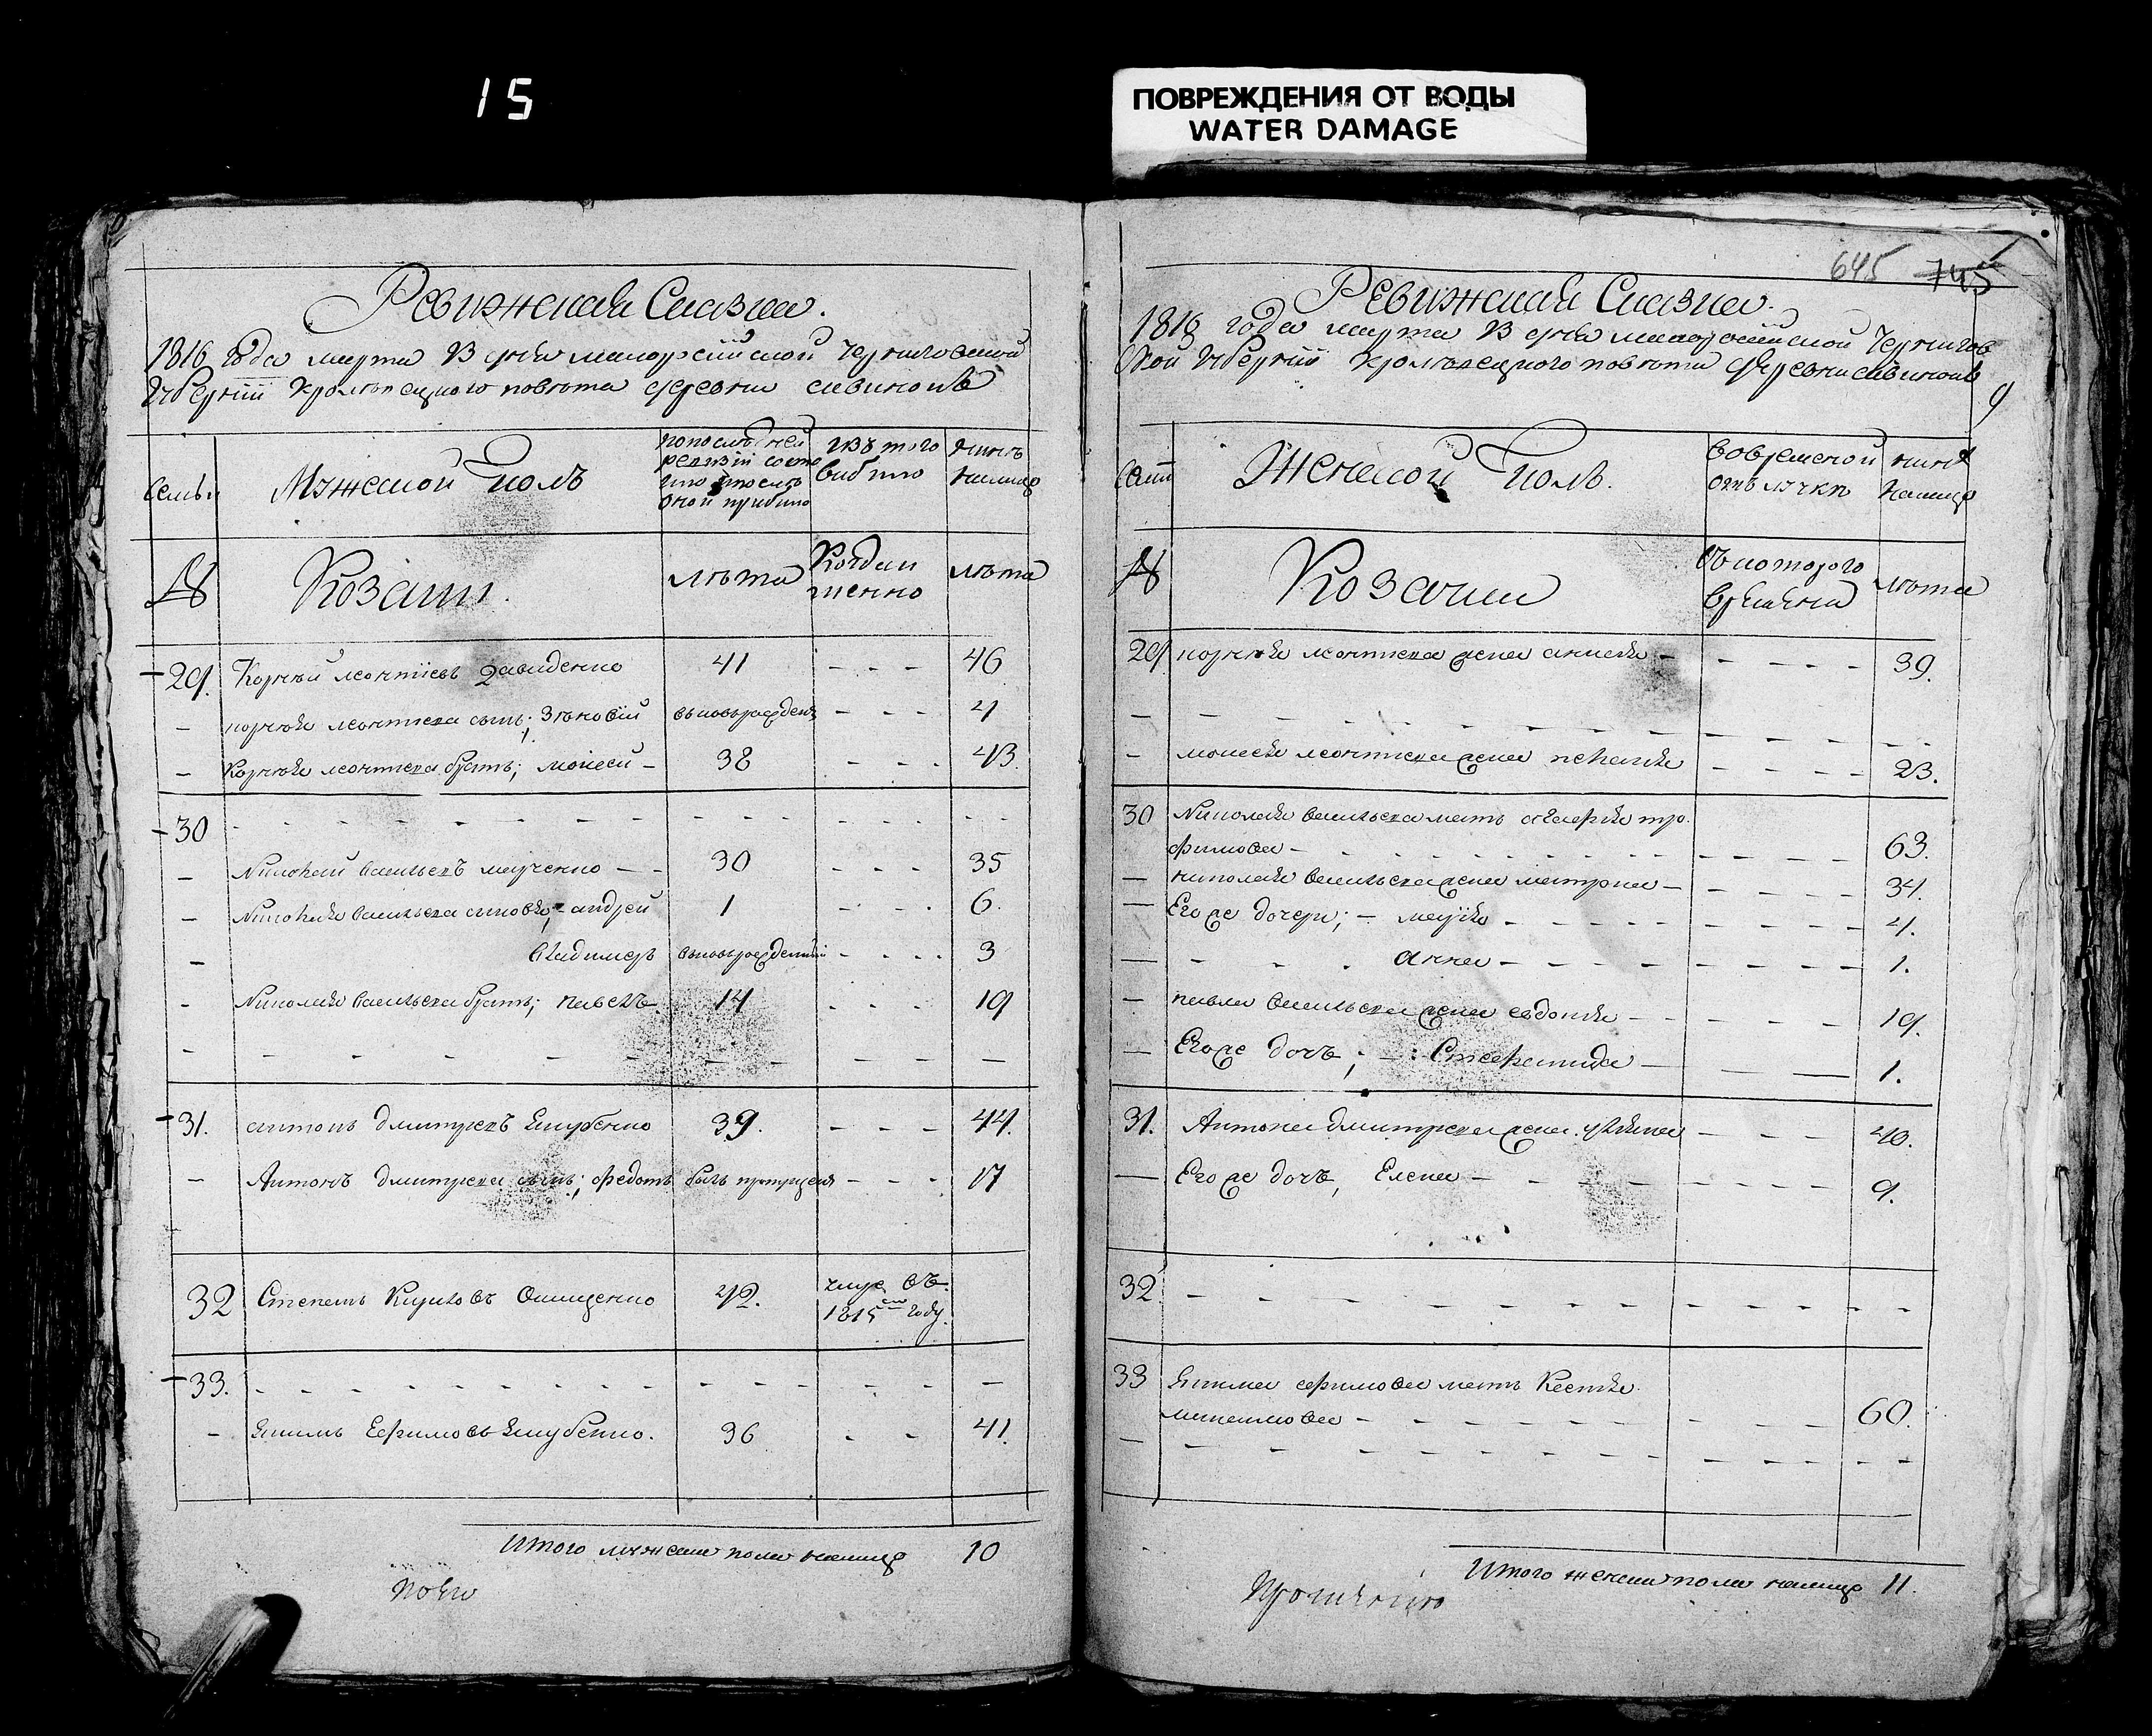 15
ПОВРЕЖДЕНИЯ ОТ ВОДЫ
WATER DAMAGE
Ревижская Сказка.
1816 года марта В день малоросийской Черниговской
Губернiи Кролевецкого повета деревни савинокъ
Семьи
Мужеской Полъ
по последней
ревизiи состо
яло и после
оной прибыло
Изъ того
выбыло
Нинѣ
налицо
№
Козаки.
лѣта
Когда и
менно
лѣта
29. Корнѣй леонтiевъ 41 - - - 46
корнѣя леонтиева сынъ; Зѣновiй вновьрожденъ - - - 4
Корнѣя леонтиева братъ; моисей 38 - - - 43
30
Николай васильевъ 30 - - - 35
Николая васильева сыновья; андрей 1 - - - 6.
владимеръ вновьрожденный - - - 3
Николая васильева братъ; павелъ 14 - - - 19
31. антонъ дмитревъ Якубенко 39. - - - 44.
Антонъ дмитрева сынъ; федотъ былъ пропущенъ - - - 17
32 Степанъ Кириловъ 42. умре въ
1815 году.
33.
Якимъ Ефимовъ Якубенко. 36 - - 41.
Итого мужеска пола налицо 10
645 745
Ревижская Сказка.
1816 года марта В день малоросийской Чернигов
ской Губернiи Кролевецкого повета деревни савинокъ
9
Семьи
Женской Полъ.
Во временой
отлучки
нинѣ
налицо
№
Козачки
Съ которого
времени
лѣта
29 корнѣя леонтиева жена - - - - 39.
моисея леонтиева жена пелагея - - - - 23.
30 Николая васильева мать агафия тро
фимова - - - - 63.
николая васильева жена матрона - - - - 34.
Его же дочери; - марiя - - - - 4.
анна - - - - 1.
павла васильева жена евдокия - - - - 19.
Его же дочъ; - Степанида - 1.
31. Антона дмитрева жена - - - 40.
Его же дочъ, Елена - - - - 9.
32
33 Якима ефимова мать
60.
Итого женска пола налицо 11.